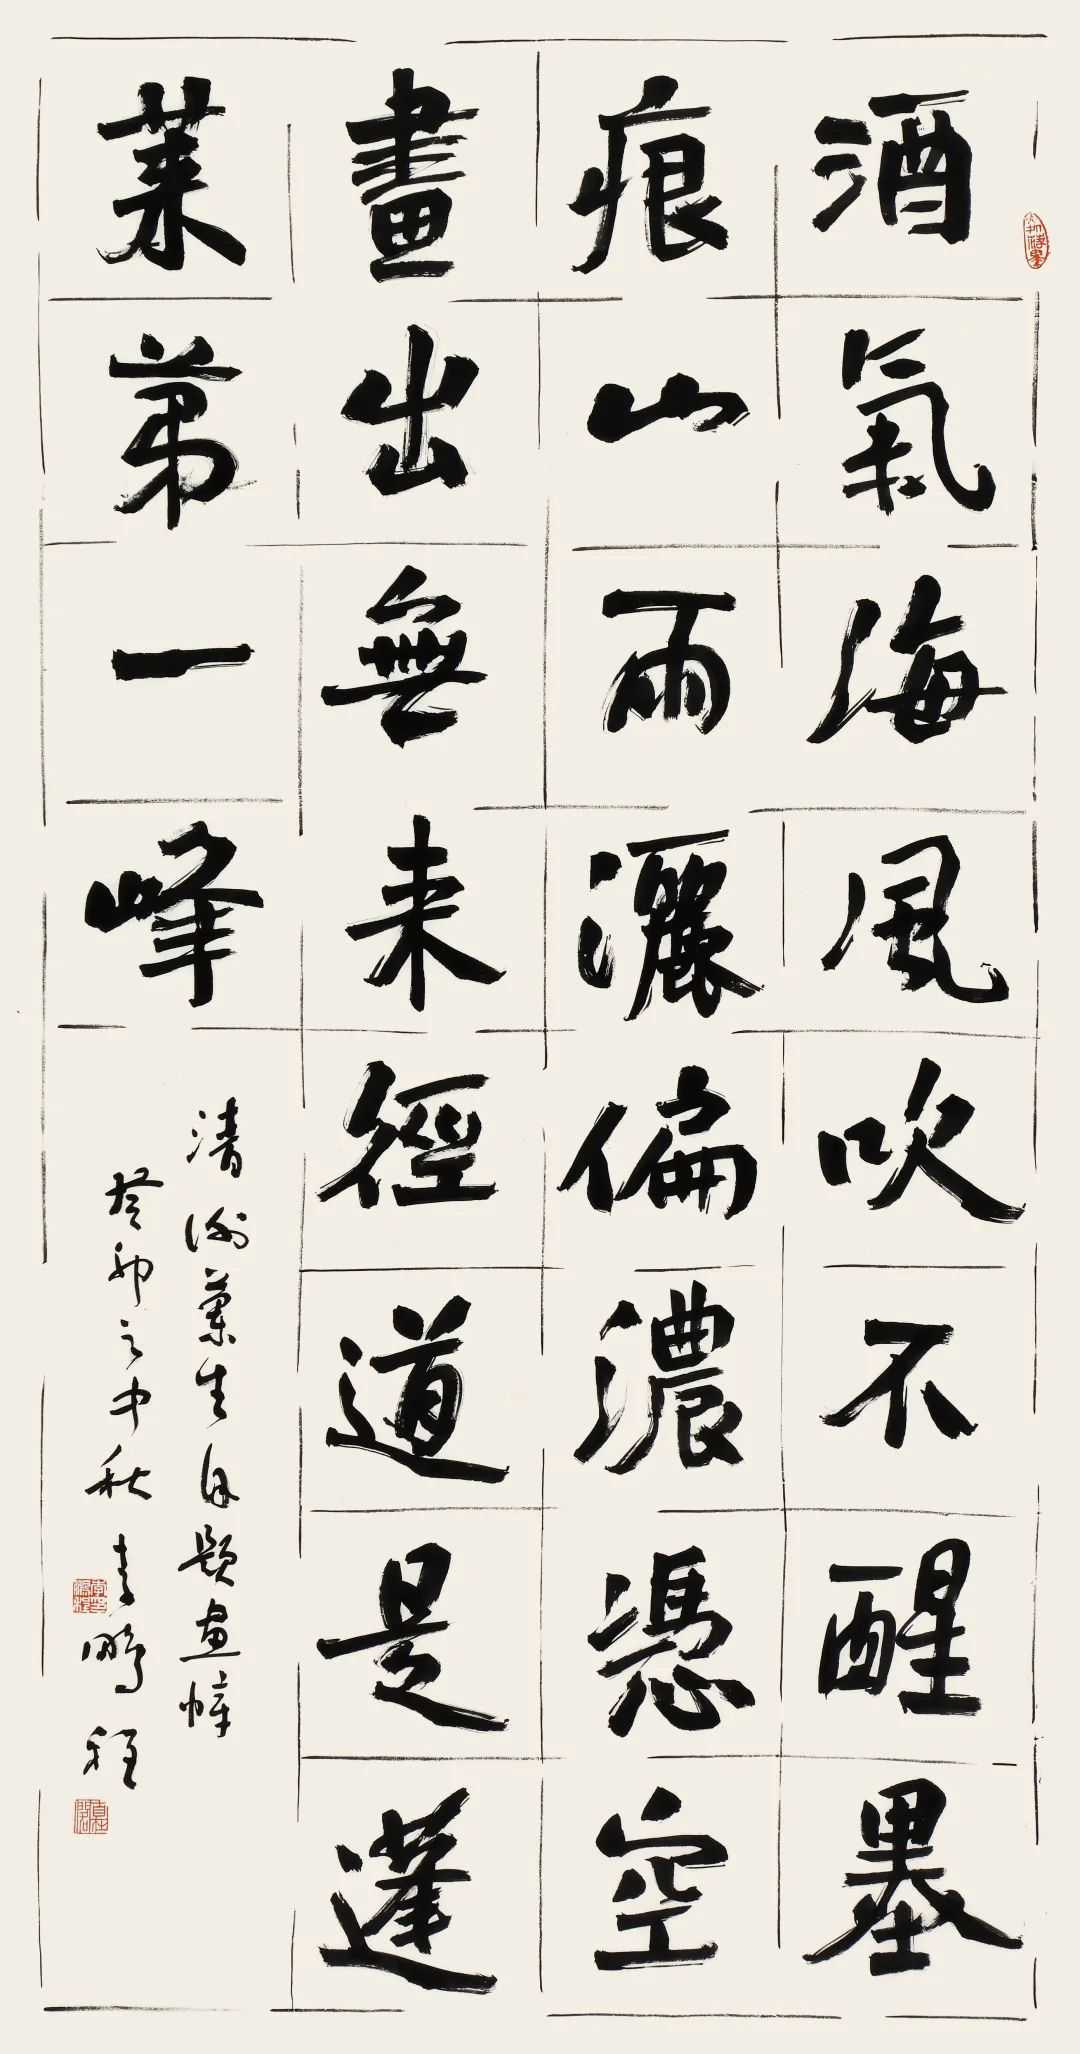 酒氣海風吹不醒墨
痕山雨灑偏濃憑空
畫出無来徑道是蓬
莱苐一峰
清謝蘭生自題畫幛
癸卯之中秋李鵬程